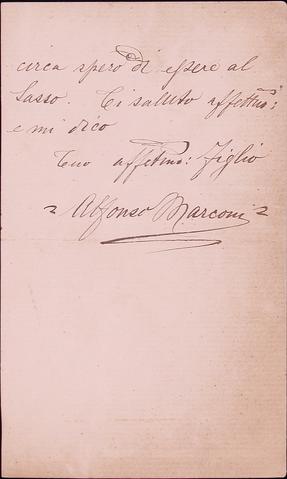 circa spero di essere al
Sasso. Ti saluto affettuo:
e mi dico
Tuo affetmo: figlio
Alfonso Marconi